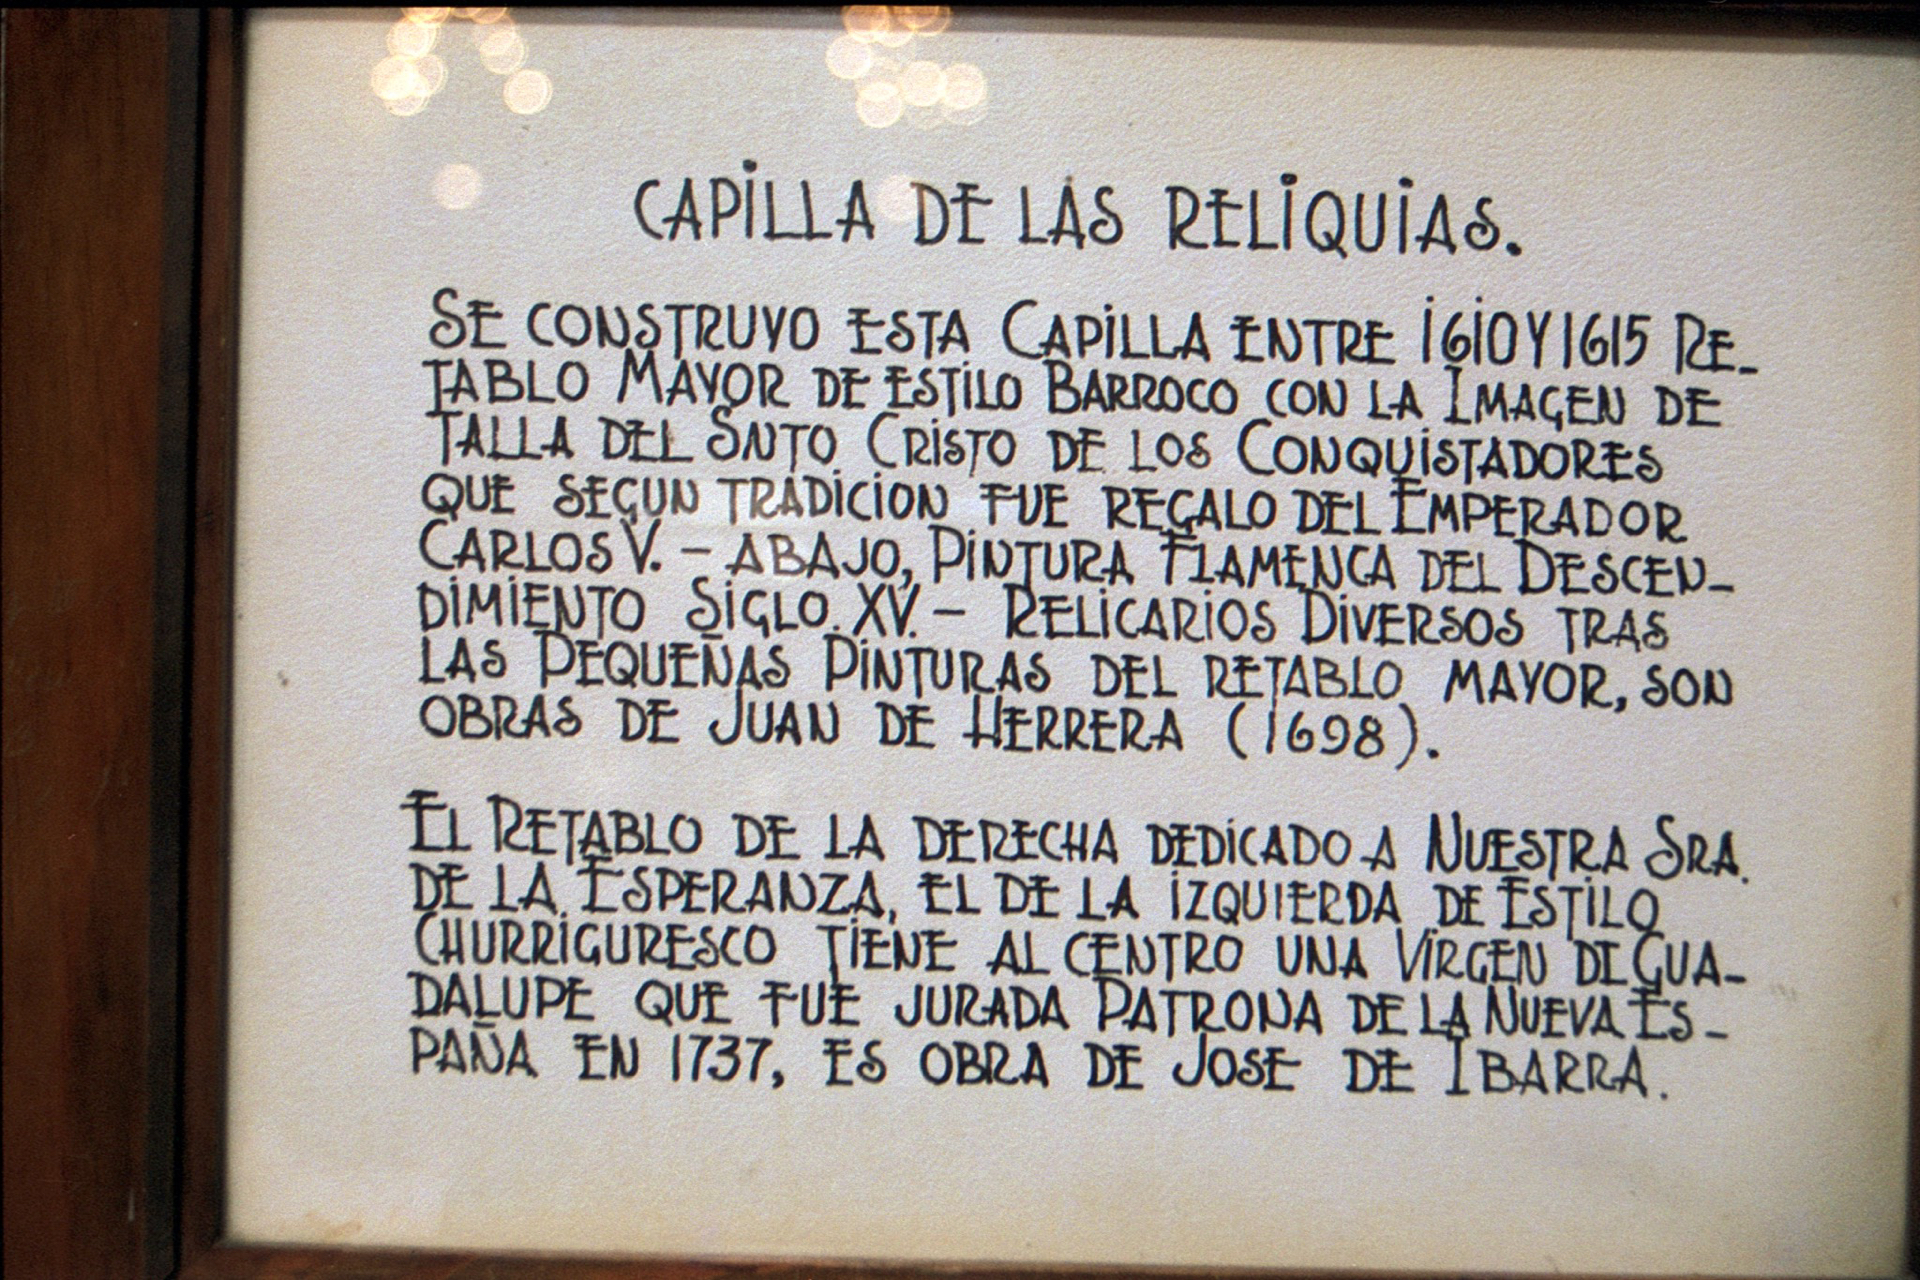 CAPILLA DE LAS RELIQUIAS.
SE CONSTRUYO ESTA CAPILLA ENTRE 1610 Y 1615 RE-
TABLO MAYOR DE ESTILO BARROCO CON LA IMAGEN DE
TALLA DEL SNTO CRISTO DE LOS CONQUISTADORES
QUE SEGUN TRADICION FUE REGALO DEL EMPERADOR
CARLOS V. - ABAJO, PINTURA FLAMENCA DEL DESCEN-
DIMIENTO SIGLO. XV. - RELICARIOS DIVERSOS TRAS
LAS PEQUEÑAS PINTURAS DEL RETABLO MAYOR, SON
OBRAS DE JUAN DE HERRERA (1698).
EL RETABLO DE LA DERECHA DEDICADO A NUESTRA SRA.
DE LA ESPERANZA, EL DE LA IZQUIERDA DE ESTILO
CHURRIGURESCO TIENE AL CENTRO UNA VIRGEN DE GUA-
DALUPE QUE FUE JURADA PATRONA DE LA NUEVA ES-
PAÑA EN 1737, ES OBRA DE JOSE DE IBARRA.